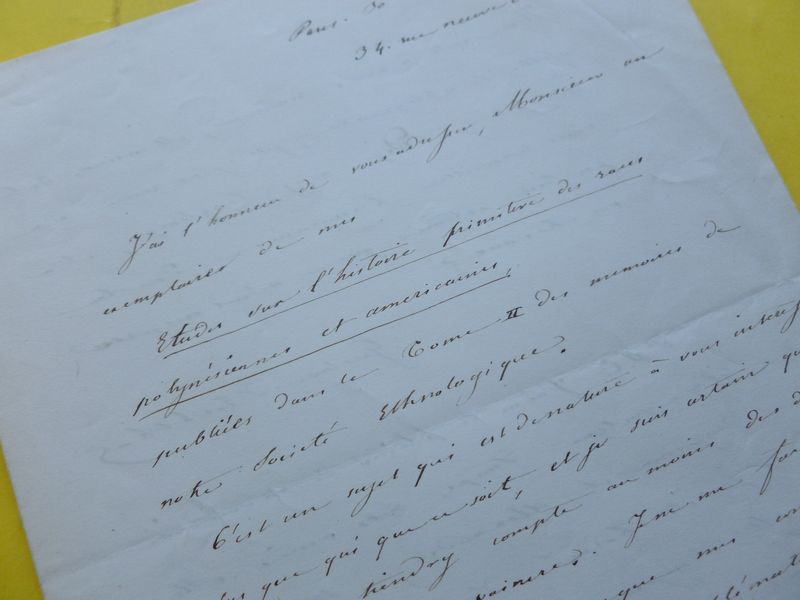 Paris. 30
34. rue neuve
J'ai l'honneur de vous adresser, Monsieur un
exemplaire de mes
Etudes sur l'histoire primitive des races
polynésiennes et américaines,
publiées dans le Tome II des memoires de
notre Société Ethnologique.
C'est un sujet qui est de nature à vous intéress
plus que qui que ce soit, et je suis certain qu
tiendry compte au moins des d
. Je ne me
que mes